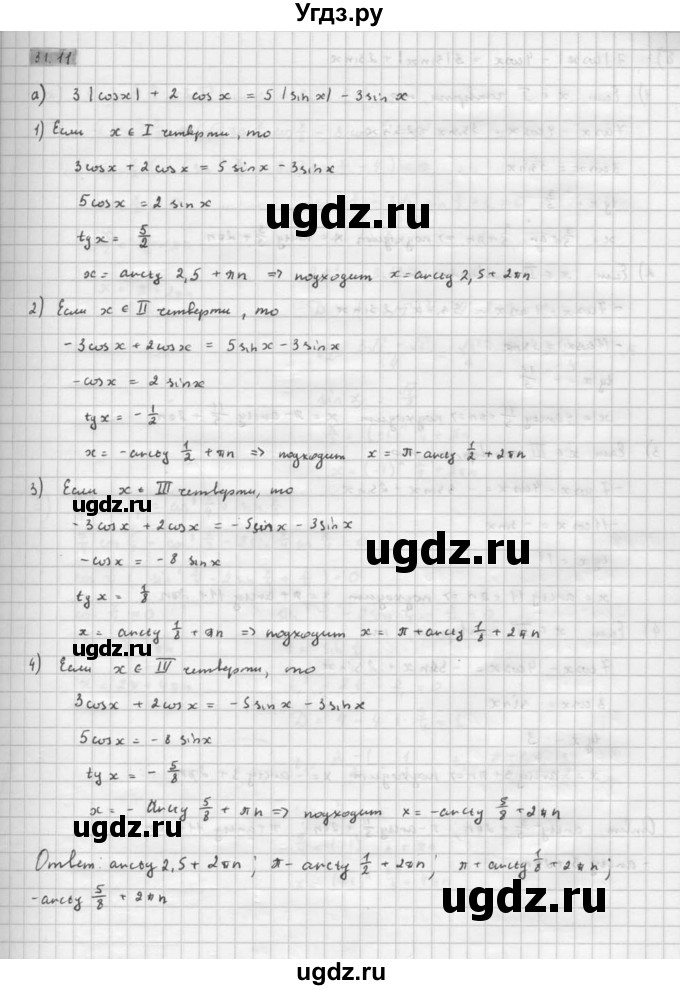 Угдз.ру
31.11
а) 3 |cosx| + 2 cosx = 5 |sinx| - 3sinx
1) Если x ∈ I четверти, то
3cosx + 2cosx = 5sinx - 3sinx
5cosx = 2 sinx
tgx = 5/2
x = arctg 2,5 + πn => подходит x = arctg 2,5 + 2πn
2) Если x ∈ II четверти, то
-3cosx + 2cosx = 5sinx - 3sinx
-cosx = 2 sinx
tgx = -1/2
x = -arctg 1/2 + πn => подходит x = π - arctg 1/2 + 2πn
3) Если x ∈ III четверти, то
-3cosx + 2cosx = -5sinx - 3sinx
-cosx = -8 sinx
tgx = 1/8
x = arctg 1/8 + πn => подходит x = π + arctg 1/8 + 2πn
4) Если x ∈ IV четверти, то
3cosx + 2cosx = -5sinx - 3sinx
5cosx = -8 sinx
tgx = -5/8
x = -arctg 5/8 + πn => подходит x = -arctg 5/8 + 2πn
Ответ: arctg 2,5 + 2πn; π - arctg 1/2 + 2πn; π + arctg 1/8 + 2πn;
-arctg 5/8 + 2πn
ugdz.ru
ugdz.ru
ugdz.ru
ugdz.ru
ugdz.ru
ugdz.ru
ugdz.ru
ugdz.ru
ugdz.ru